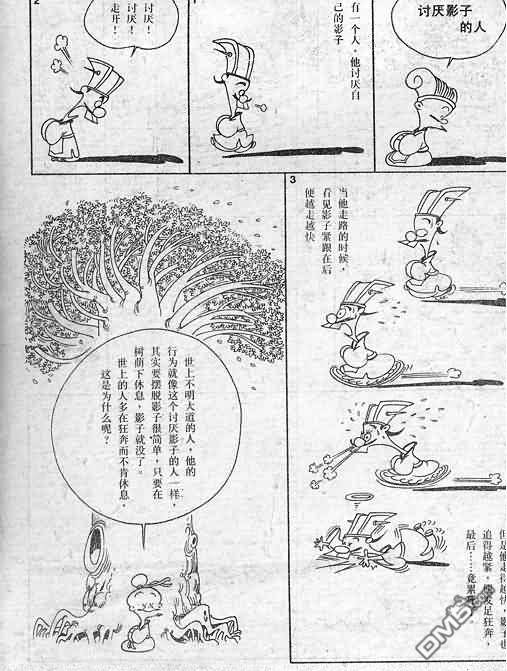 讨厌影子
的人
1
有一个人，他讨厌自
己的影子
2
讨厌！
讨厌！
走开！
3
当他走路的时候，
看见影子紧跟在后
便越走越快
但是他走得越快，影子也
追得越紧，
发足狂奔，
最后……竟累
世上不明大道的人，他的
行为就像这个讨厌影子的人一样，
其实要摆脱影子很简单，只要在
树荫下休息，影子就没了。
世上的人多在狂奔而不肯休息，
这是为什么呢？